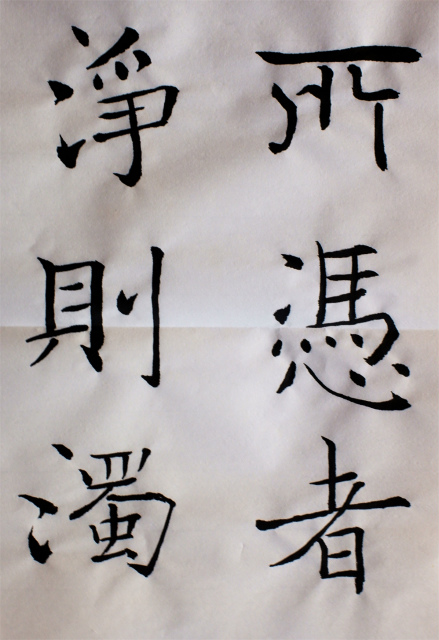 所憑者
淨則濁